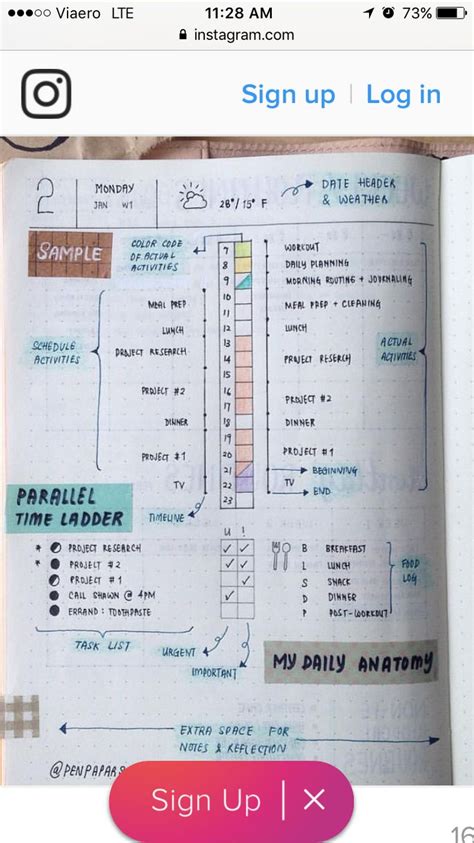 Viaero LTE 11:28 AM 73%
instagram.com
Sign up | Log in
2 MONDAY 28°/15° F DATE HEADER
JAN W1 & WEATHER
SAMPLE
COLOR CODE
OF ACTUAL
ACTIVITIES
7 WORKOUT
8 DAILY PLANNING
9 MORNING ROUTINE + JOURNALING
MEAL PREP 10 MEAL PREP + CLEANING
11
LUNCH 12 LUNCH
SCHEDULE
ACTIVITIES
ACTUAL
ACTIVITIES
PROJECT RESEARCH 13
14 PROJECT RESERCH
15
PROJECT #2 16 PROJECT #2
17
DINNER 18 DINNER
19
PROJECT #1 20 PROJECT #1
21 BEGINNING
TV 22 TV END
23
PARALLEL
TIME LADDER
TIMELINE
U !
PROJECT RESEARCH
PROJECT #2
PROJECT #1
CALL SHAWN @ 4PM
ERRAND: TOOTHPASTE
B BREAKFAST
L LUNCH
S SNACK
D DINNER
P POST-WORKOUT
FOOD
LOG
TASK LIST
URGENT
IMPORTANT
MY DAILY ANATOMY
EXTRA SPACE FOR
NOTES & REFLECTION
Sign Up | X
16